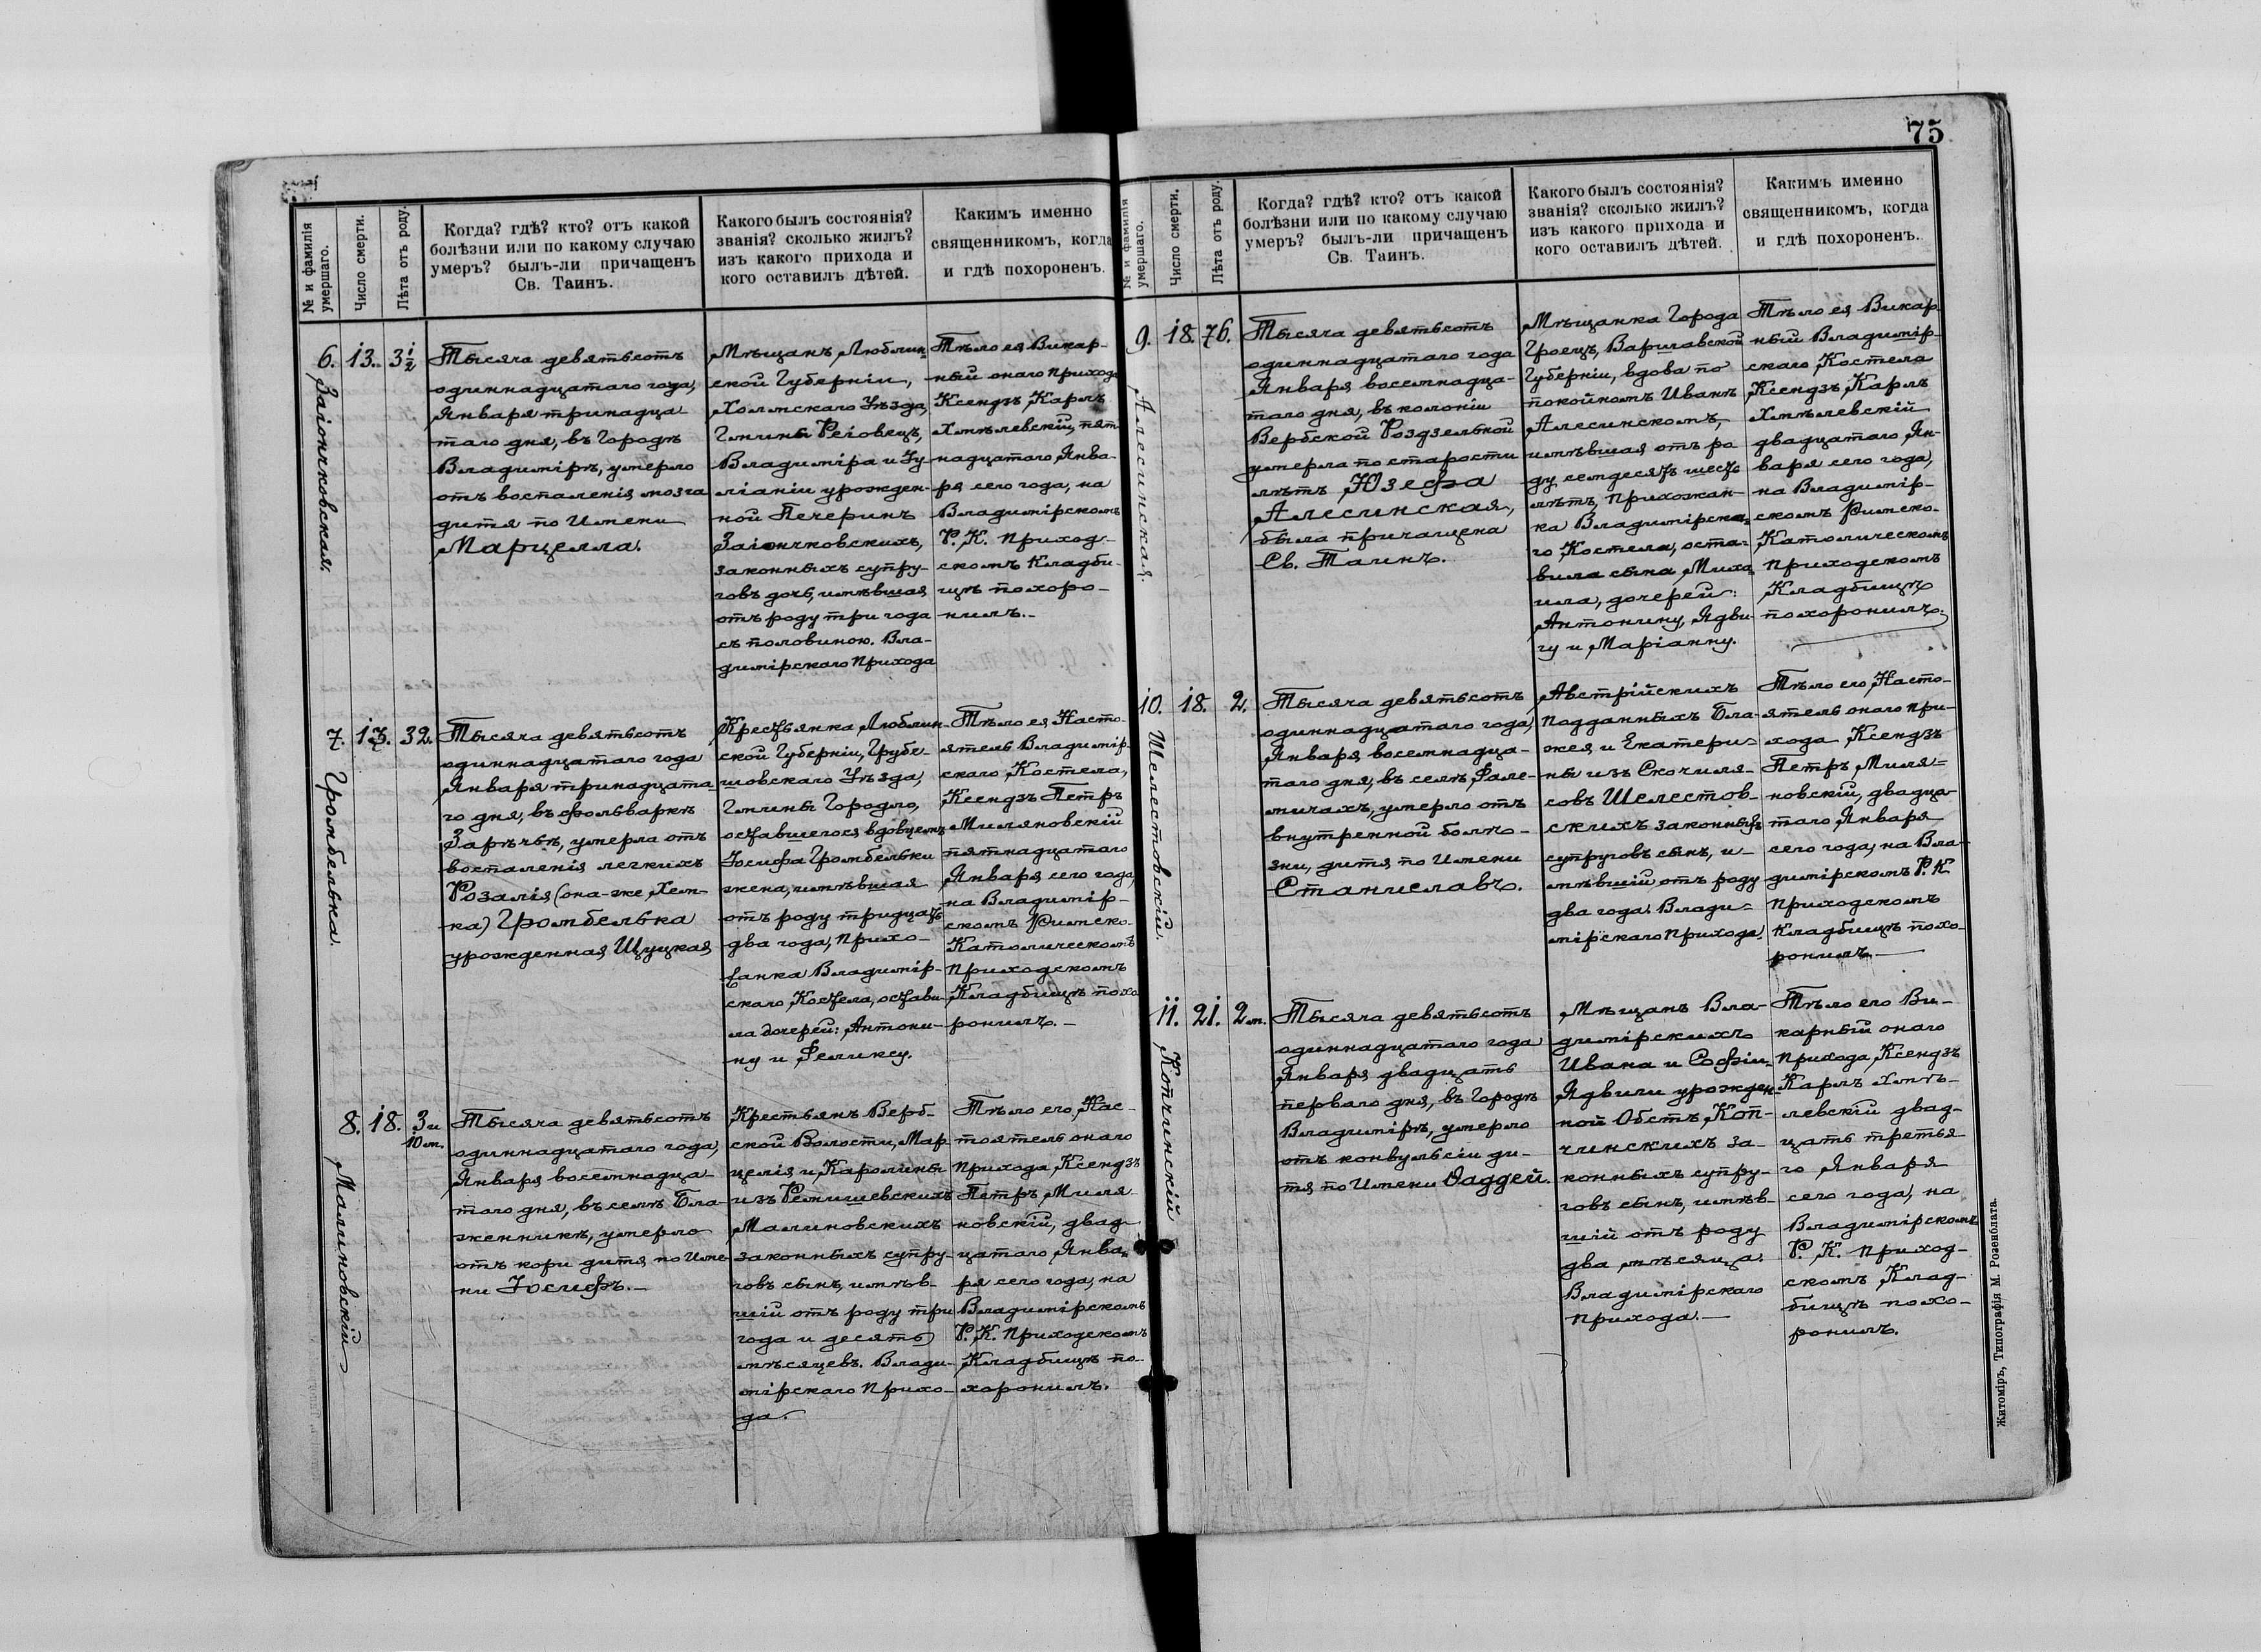 75
№ и фамилія
умершаго.
Число смерти.
Лѣта отъ роду.
Когда? гдѣ? кто? отъ какой
болѣзни или по какому случаю
умеръ? былъ-ли причащенъ
Св. Таинъ.
Какого былъ состоянія?
званія? сколько жилъ?
изъ какого прихода и
кого оставилъ дѣтей.
Какимъ именно
священникомъ, когда
и гдѣ похороненъ.
6.
Заіончковская.
13.
3½
Тысяча девятьсотъ
одиннадцатаго года,
Января тринадца
таго дня, въ Городѣ
Владимірѣ, умерло
отъ воспаленія мозга
дитя по Имени
Марцелла.
Мѣщанъ, Люблин
ской Губерніи,
Холмскаго Уѣзда,
Гмины Реіовецъ,
Владиміра и Ју-
ліаніи урожден-
ной Печеринъ
Заіончковскихъ,
законныхъ супру-
говъ дочь, имѣвшая
отъ роду три года
съ половиною. Вла-
димірскаго Прихода
Тѣло ея Викар-
ный онаго прихода
Ксендзъ Карлъ
Хмѣлевскій, пят-
надцатаго Янва-
ря сего года, на
Владимірскомъ
Р. К. Приход-
скомъ Кладби-
щѣ похоро-
нилъ.-
7.
Громбелька.
13.
32.
Тысяча девятьсотъ
одиннадцатаго года
Января тринадцата
го дня, въ фольваркѣ
Зарѣчьѣ, умерла отъ
воспаленія легкихъ
Розалія (она-же, Хем-
ка) Громбелька
урожденная Щуцкая
Крестьянка Люблин-
ской Губерніи, Грубе-
шовскаго Уѣзда,
Гмины Городло,
оставшегося вдовцемъ
Іосифа Громбельки
жена, имѣвшая
отъ роду тридцать
два года, прихо-
жанка Владимір-
скаго Костела, остави-
ла дочерей: Антони-
ну и Феликсу.
Тѣло ея Насто-
ятель Владимір-
скаго Костела,
Ксендзъ Петръ
Миляновскій
пятнадцатаго
Января сего года,
на Владимір-
скомъ Римско-
Католическомъ
приходскомъ
Кладбищѣ похо
ронилъ.-
8.
Малиновскій
18.
3 и
10 м.
Тысяча девятьсотъ
одиннадцатаго года,
Января восемнадца-
таго дня, въ селѣ Бла-
женникѣ, умерло
отъ кори дитя по Име
ни Іосифъ.-
Крестьянъ Верб-
ской Волости, Мар-
целія и Каролины
изъ Ремишевскихъ
Малиновскихъ
законныхъ супру-
говъ сынъ, имѣв-
шій отъ роду три
года и десять
мѣсяцевъ. Влади-
мірскаго Прихо-
да.
Тѣло его, Нас-
тоятель онаго
прихода, Ксендзъ
Петръ Миля-
новскій, двад-
цатаго Янва-
ря сего года, на
Владимірскомъ
Р. К. Приходскомъ
Кладбищѣ по-
хоронилъ.
№ и фамилія
умершаго.
Число смерти.
Лѣта отъ роду.
Когда? гдѣ? кто? отъ какой
болѣзни или по какому случаю
умеръ? былъ-ли причащенъ
Св. Таинъ.
Какого былъ состоянія?
званія? сколько жилъ?
изъ какого прихода и
кого оставилъ дѣтей.
Какимъ именно
священникомъ, когда
и гдѣ похороненъ.
9.
Алесинская.
18.
76.
Тысяча девятьсотъ
одиннадцатаго года
Января восемнадца-
таго дня, въ колоніи
Вербской Роздзельной
умерла по старости
лѣтъ Юзефа
Алесинская,
была причащена
Св. Таинъ.
Мѣщанка Города
Гроецъ, Варшавской
Губерніи, вдова по
покойномъ Иванѣ
Алесинскомъ,
имѣвшая отъ ро
ду семдесятъ шесть
лѣтъ, Прихожан-
ка Владимірска-
го Костела, оста-
вила сына, Миха
ила, дочерей:
Антонину, Ядви-
гу и Маріанну.
Тѣло ея Викар
ный Владимір-
скаго Костела
Ксендзъ Карлъ
Хмѣлевскій
двадцатаго Ян-
варя сего года,
на Владимір-
скомъ Римско-
Католическомъ
приходскомъ
Кладбищѣ
похоронилъ.
10.
Шелестовскій.
18.
2.
Тысяча девятьсотъ
одиннадцатаго года,
Января восемнадца-
таго дня, въ селѣ, Фале-
мичахъ, умерло отъ
внутренной болѣ-
зни, дитя по Имени
Станиславъ.
Австрійскихъ
подданныхъ Бла-
жея и Екатери-
ны изъ Скочиля-
совъ Шелестов-
скихъ законныхъ
супруговъ сынъ, и-
мѣвшій отъ роду
два года. Влади-
мірскаго Прихода.
Тѣло его, Насто-
ятель онаго при-
хода Ксендзъ
Петръ Миля-
новскій, двадца-
таго Января
сего года, на Вла-
димірскомъ Р. К
приходскомъ
Кладбищѣ похо-
ронилъ.-
11.
Копчинскій
21.
2 м.
Тысяча девятьсотъ
одиннадцатаго года
Января двадцать
перваго дня, въ Городѣ
Владимірѣ, умерло
отъ конвульсіи ди-
тя по Имени Ѳаддей.
Мѣщанъ Вла-
димірскихъ
Ивана и Софіи-
Ядвиги урожден-
ной Обстъ, Коп-
чинскихъ за-
конныхъ супру-
говъ сынъ, имѣв-
шій отъ роду
два мѣсяца.
Владимірскаго
Прихода.-
Тѣло его Ви-
карный онаго
прихода, Ксендзъ
Карлъ Хмѣ-
левскій двад-
цать третья-
го Января
сего года, на
Владимірскомъ
Р. К. Приход-
скомъ Клад-
бищѣ похо-
ронилъ.
Житоміръ, Типографія М. Розенблата.